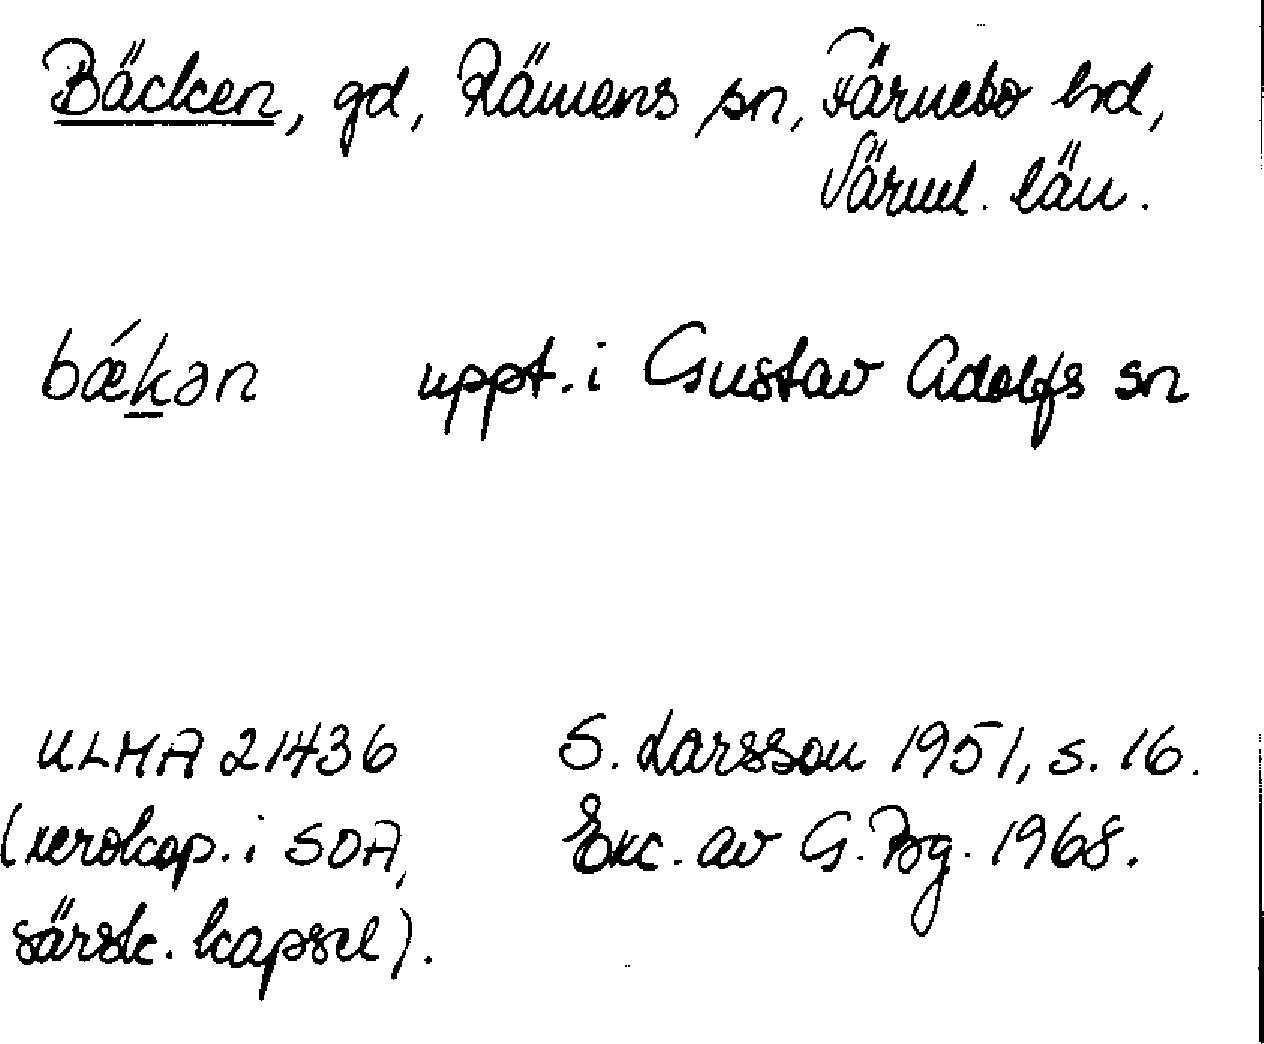 Bäcken, gd, Rämens sn, Färnebo hd,
Värml. län.
bǽk̲ən uppt. i Gustav Adolfs sn
ULMA 21436 S. Larsson 1951, s. 16.
(xerokop. i SOA, Exc. av G. Bg. 1968.
särsk. kapsel).